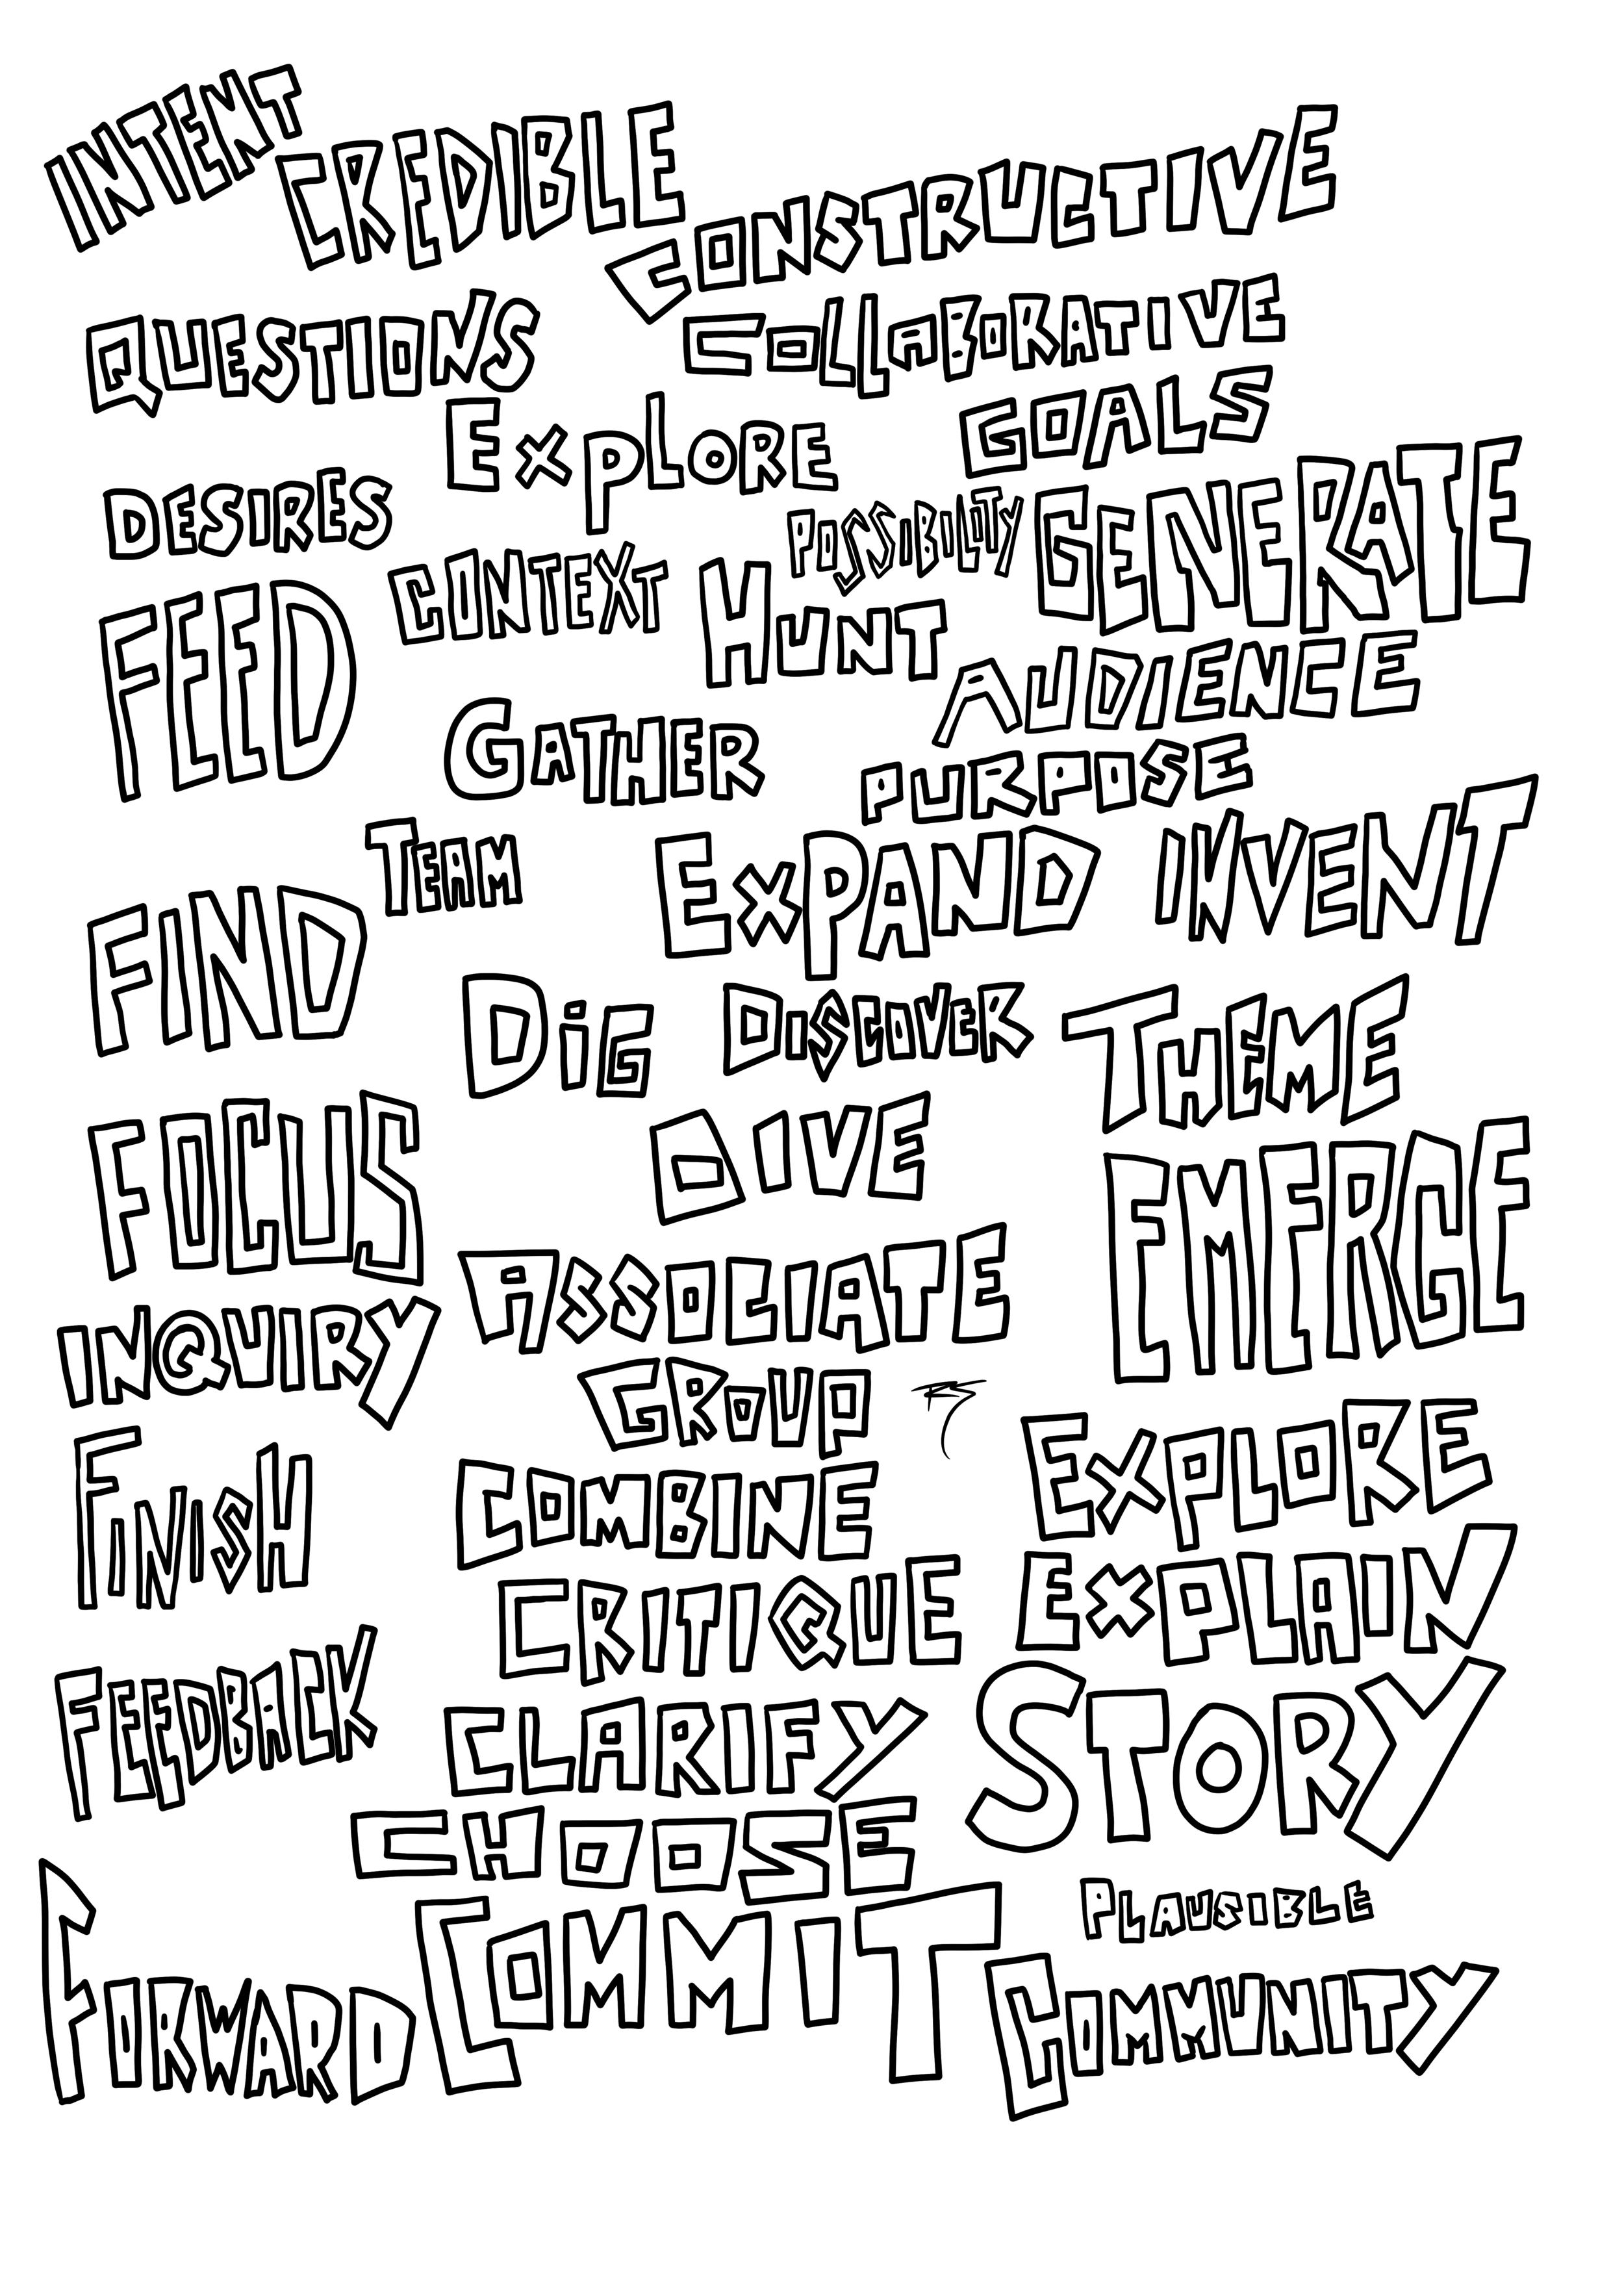 INTENT
CREDIBLE
CONSTRUCTIVE
QUESTIONS
COllABORATIVE
ExplORE
GOALS
DESIRES
POSSIBILITY
GENERATE
FEED
CONTEXT
HUNT
AUDIENCE
GATHER
PURPOSE
TEAM
EXPAND
INVENT
FIND
DiG
DISCOVER
THEME
FOCUS
DIVE
EMERGE
INQUIRY
ASSOCIATE
GROUP
FINISH
COMBINE
EXPLORE
CRITIQUE
EXPLAIN
FEEDBACK
CLARIFY
STORY
CHOOSE
FORWARD
COMMIT
PLAUSIBLE
COMMUNITY